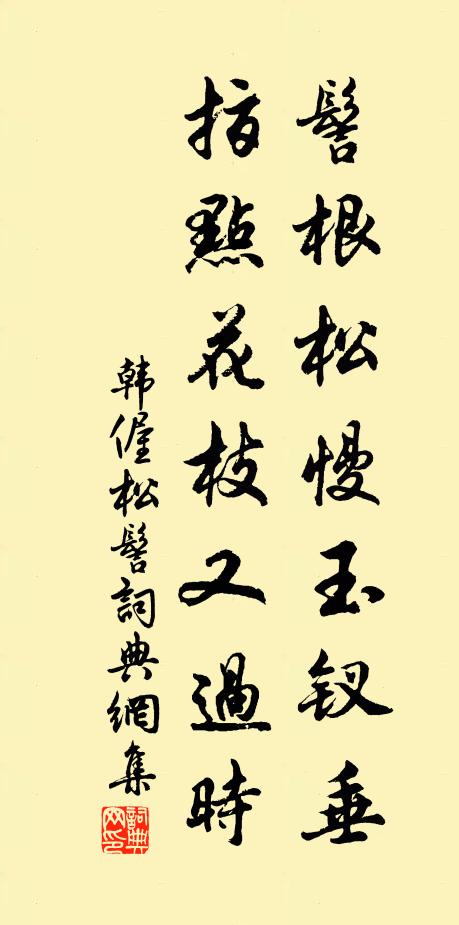 髻根松慢玉钗垂
指點花枝又過時
韩偓松髻詞典網集
詞典網印